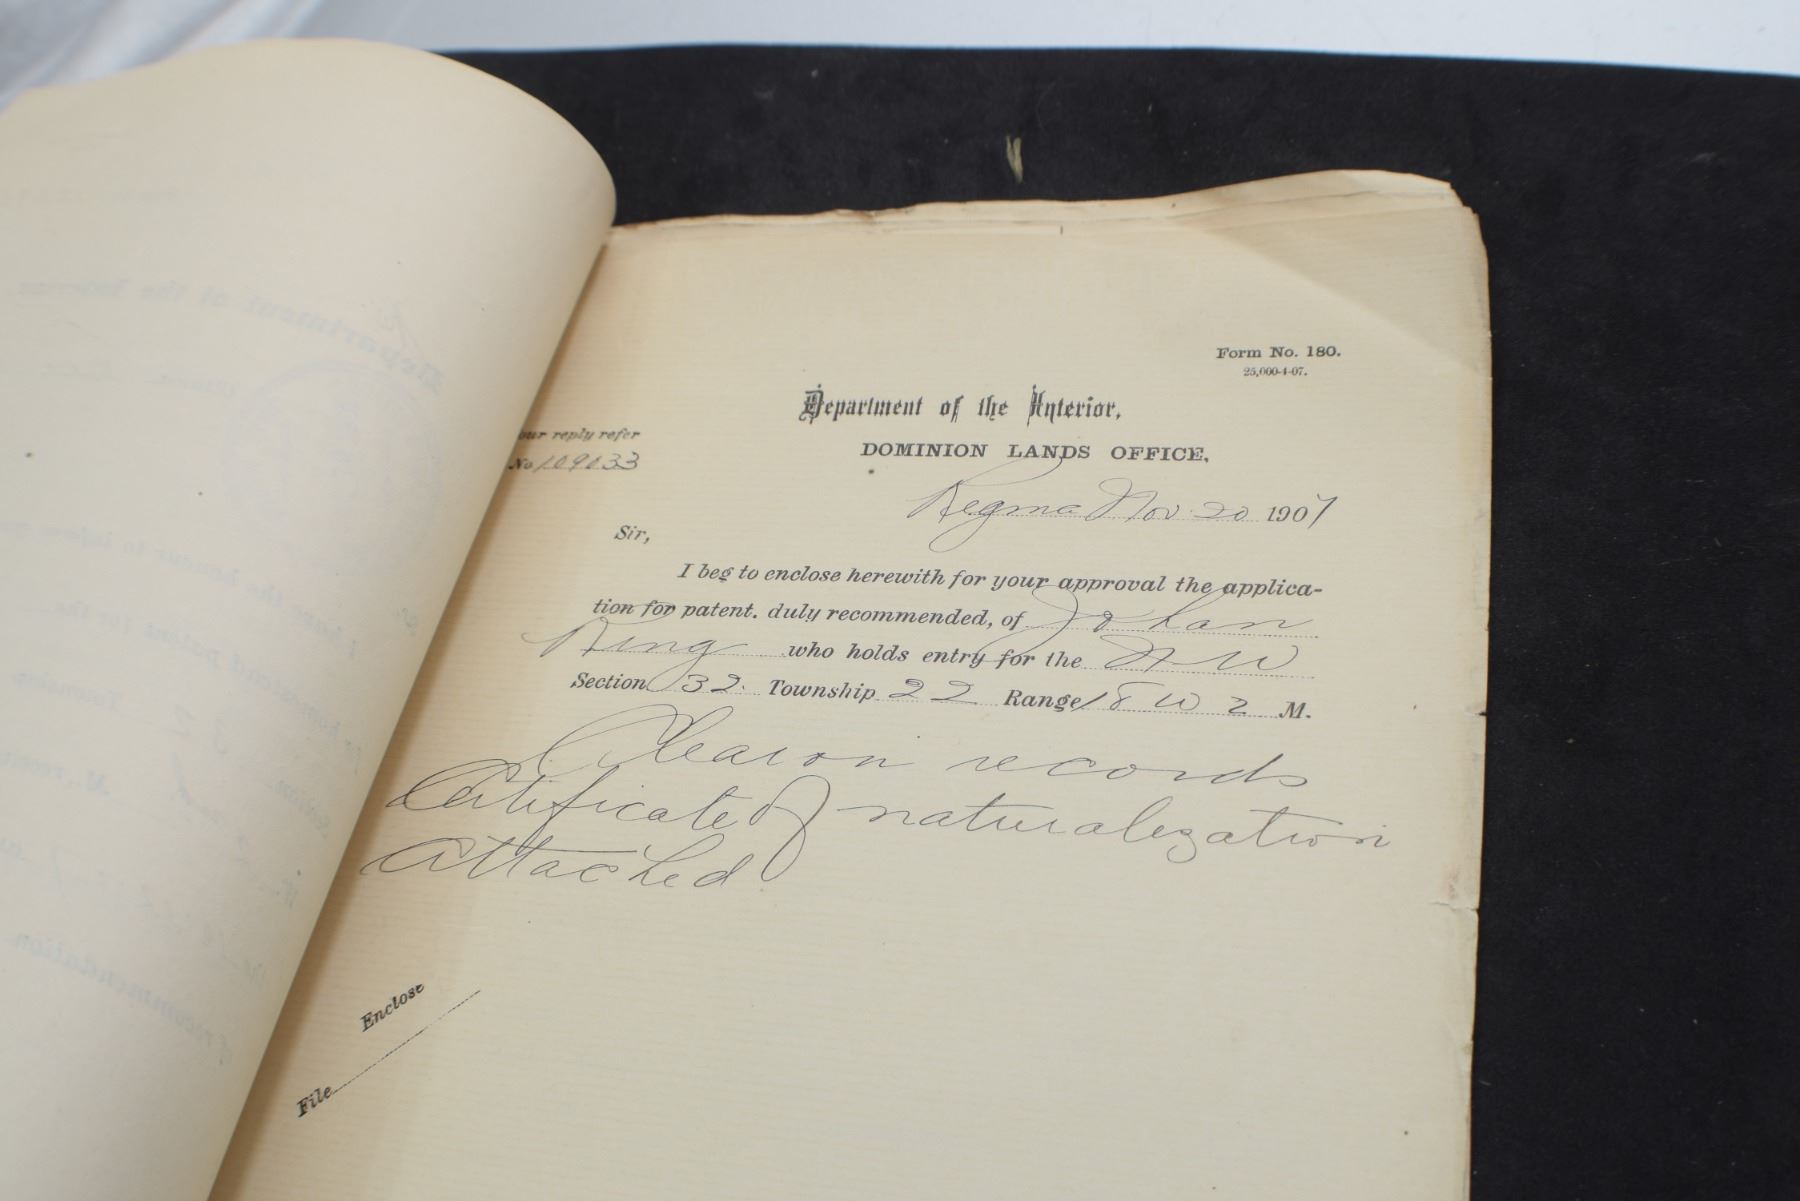 Form No. 180.
25,000-4-07.
Department of the Interior,
DOMINION LANDS OFFICE,
our reply refer
No 109133
Regina Nov 20 1907
Sir,
I beg to enclose herewith for your approval the applica-
tion for patent. duly recommended, of Johan
Ring who holds entry for the NW
Section 32. Township 22 Range 18 W 2 M.
Clear on records
Certificate of naturalization
attached
Enclose
File